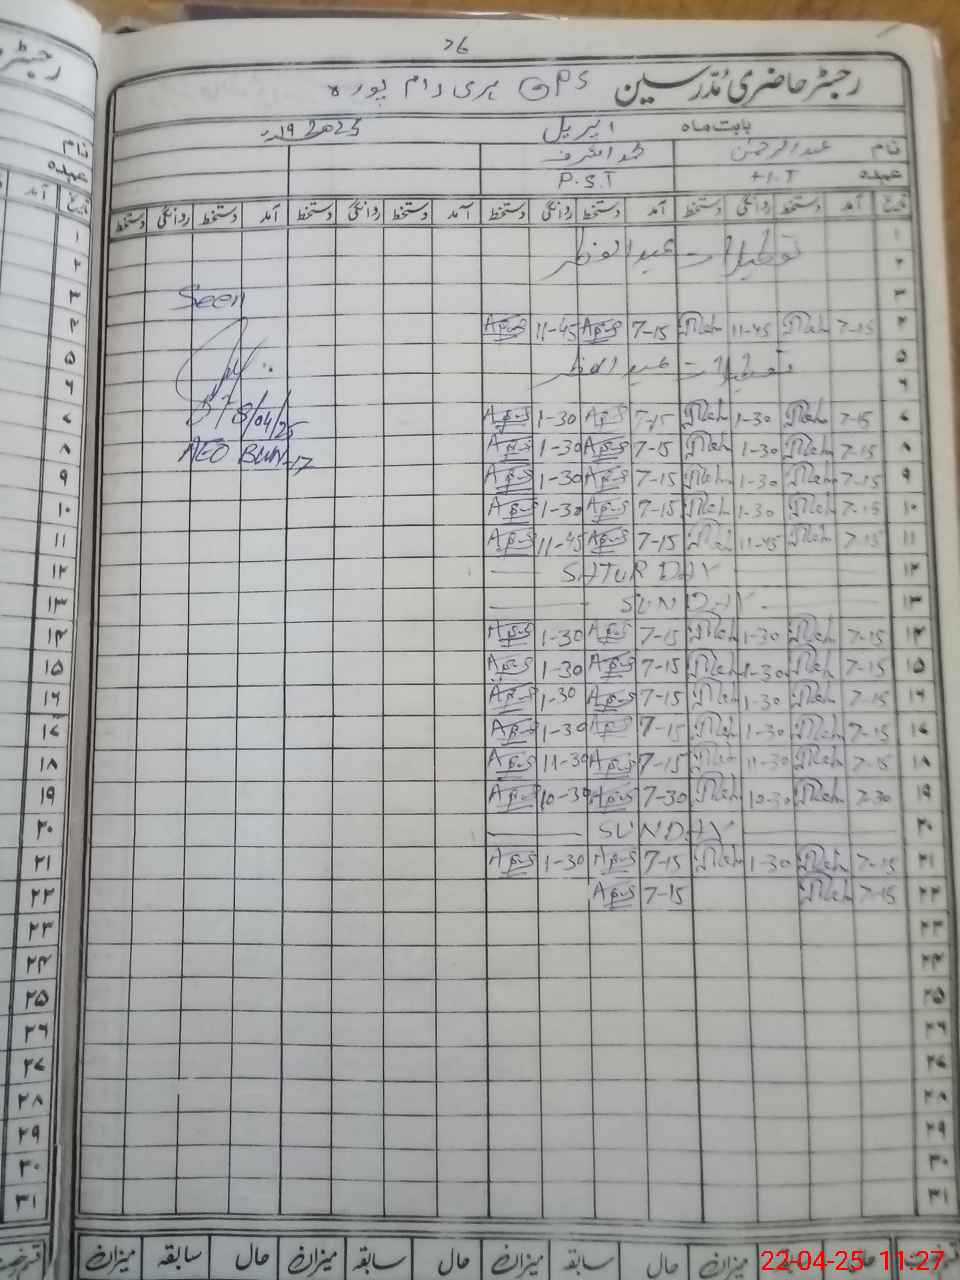 26
رجسٹر حاضری مدرسین GPS ہری رام پورہ
بابت ماہ اپریل 2025
نام عبدالرحمن محمد اشرف
عہدہ H.T P.S.T
تاریخ آمد دستخط روانگی دستخط آمد دستخط روانگی دستخط آمد دستخط روانگی دستخط آمد دستخط روانگی دستخط
۱
۲ تعطیلات عید الفطر
۳ Seen
۴ 7-15 11-45 7-15 11-45
۵ تعطیلات عید الفطر
۶
۷ 7-15 1-30 7-15 1-30 8/04/25
۸ 7-15 1-30 7-15 1-30 AEO
۹ 7-15 1-30 7-15 1-30
۱۰ 7-15 1-30 7-15 1-30
۱۱ 7-15 11-45 7-15 11-45
۱۲ SATURDAY
۱۳ SUNDAY
۱۴ 7-15 1-30 7-15 1-30
۱۵ 7-15 1-30 7-15 1-30
۱۶ 7-15 1-30 7-15 1-30
۱۷ 7-15 1-30 7-15 1-30
۱۸ 7-15 11-30 7-15 11-30
۱۹ 7-30 10-30 7-30 10-30
۲۰ SUNDAY
۲۱ 7-15 1-30 7-15 1-30
۲۲ 7-15 7-15
۲۳
۲۴
۲۵
۲۶
۲۷
۲۸
۲۹
۳۰
۳۱
میزان حال سابقہ میزان حال سابقہ میزان
22-04-25 11:27